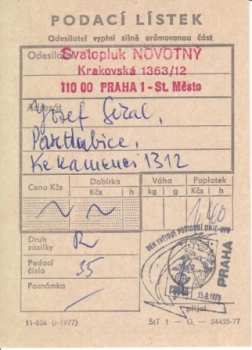 PODACÍ LÍSTEK
Odesilatel vyplní silně orámovanou část
Odesilatel
Svatopluk NOVOTNÝ
Krakovská 1363/12
110 00 PRAHA 1 - St. Město
Adresát
Josef Sížal,
Pardubice,
Ke kamenci 1312
Cena Kčs Dobírka Kčs h Váha kg g Poplatek Kčs h
1,40
Druh zásilky R
Podací číslo 35
Poznámka
PRAHA
přijal
11-036 (I-1977) StT 1 - G. - 54455-77